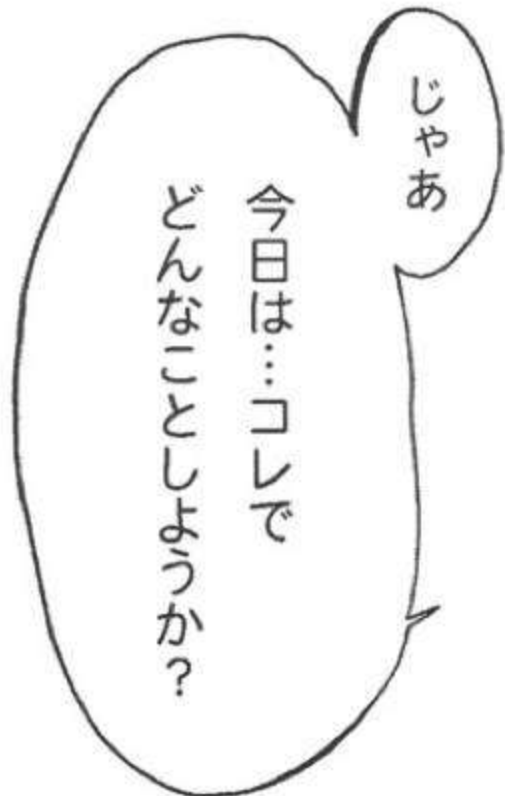 じゃあ
今日は…コレで
どんなことしようか？